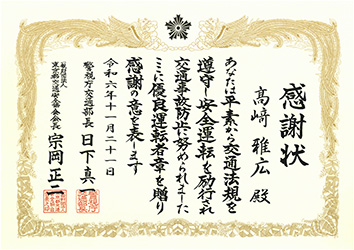 感謝状
髙﨑雅広殿
あなたは平素から交通法規を
遵守し安全運転を励行され
交通事故防止に努められました
ここに優良運転者章を贈り
感謝の意を表します
令和六年十一月二十一日
警視庁交通部長 日下真一
一般財団法人
東京都交通安全協会会長 宗岡正二